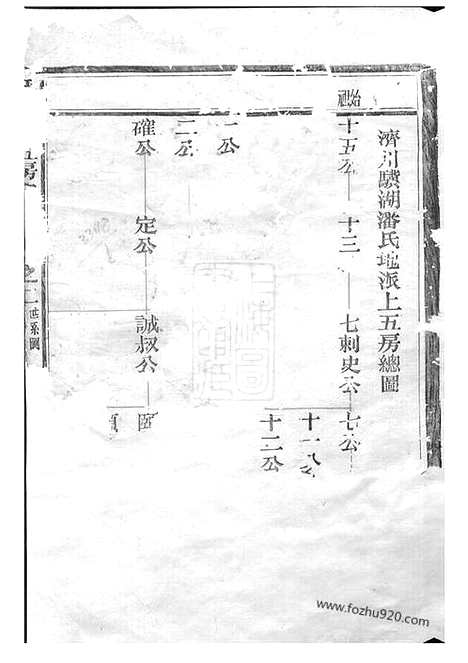 濟川驥湖潘氏地派上五房總圖
始祖
十五公 十三 七刺史公 七公
十一公
十二公
一公
二公
確公 定公 誠叔公
五房
世系圖
www.fozhu920.com